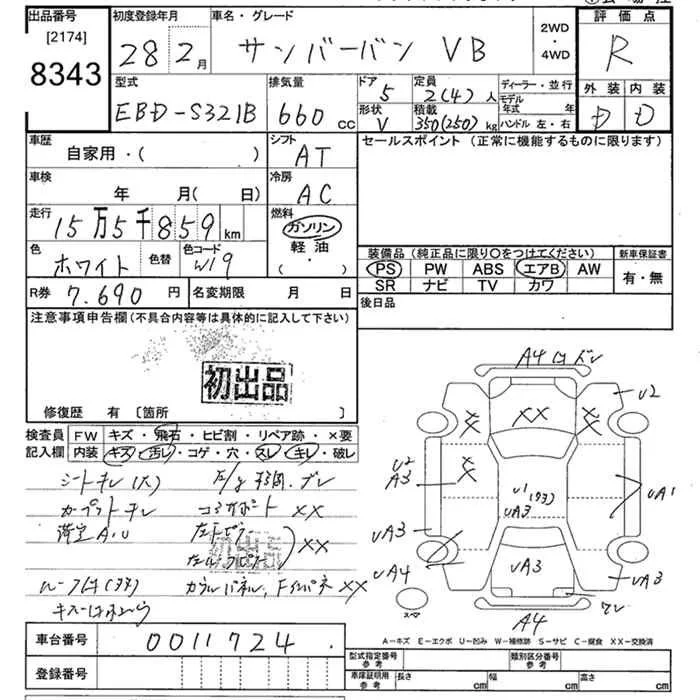 出品番号
[2174]
8343
初度登録年月
28 2月
車名・グレード
サンバーバン VB
2WD
4WD
評価点
R
外装 内装
D D
型式
EBD-S321B
排気量
660 cc
ドア
5
形状
V
定員
2(4)人
積載
350(250)kg
ディーラー・並行
モデル年式 年
ハンドル 左・右
車歴
自家用・( )
シフト
AT
セールスポイント(正常に機能するものに限ります)
車検
年 月(日)
冷房
AC
走行
15万5千859km
燃料
ガソリン
軽油
( ・ )
色
ホワイト
色替
色コード
W19
装備品(純正品に限り〇をつけてください)
PS PW ABS エアB AW
SR ナビ TV カワ
新車保証書
有・無
R券 7.690円
名変期限 月 日
後日品
注意事項申告欄(不具合内容等は具体的に記入して下さい)
初出品
修復歴 有 [箇所 ]
検査員
記入欄
FW キズ・飛石・ヒビ割・リペア跡・×要
内装 キズ・汚レ・コゲ・穴・スレ・キレ・破レ
シートキレ(大)
カーペットキレ
コアサポート XX
初出品
XX
XX
A4
U2
XX
XX
XX
U2
A3
U1
UA3
UA1
UA3
UA4
UA3
UA3
スペア
A4
A-キズ E-エクボ U-凹み W-補修跡 S-サビ C-腐食 XX-交換済
車台番号
0011724
登録番号
型式指定番号
参考
類別区分番号
参考
車庫証明用
参考
長さ cm
幅 cm
高さ cm